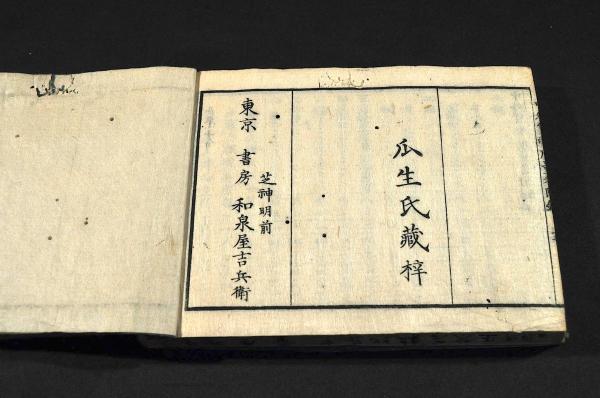 瓜生氏藏梓
芝神明前
東京 書房 和泉屋吉兵衛